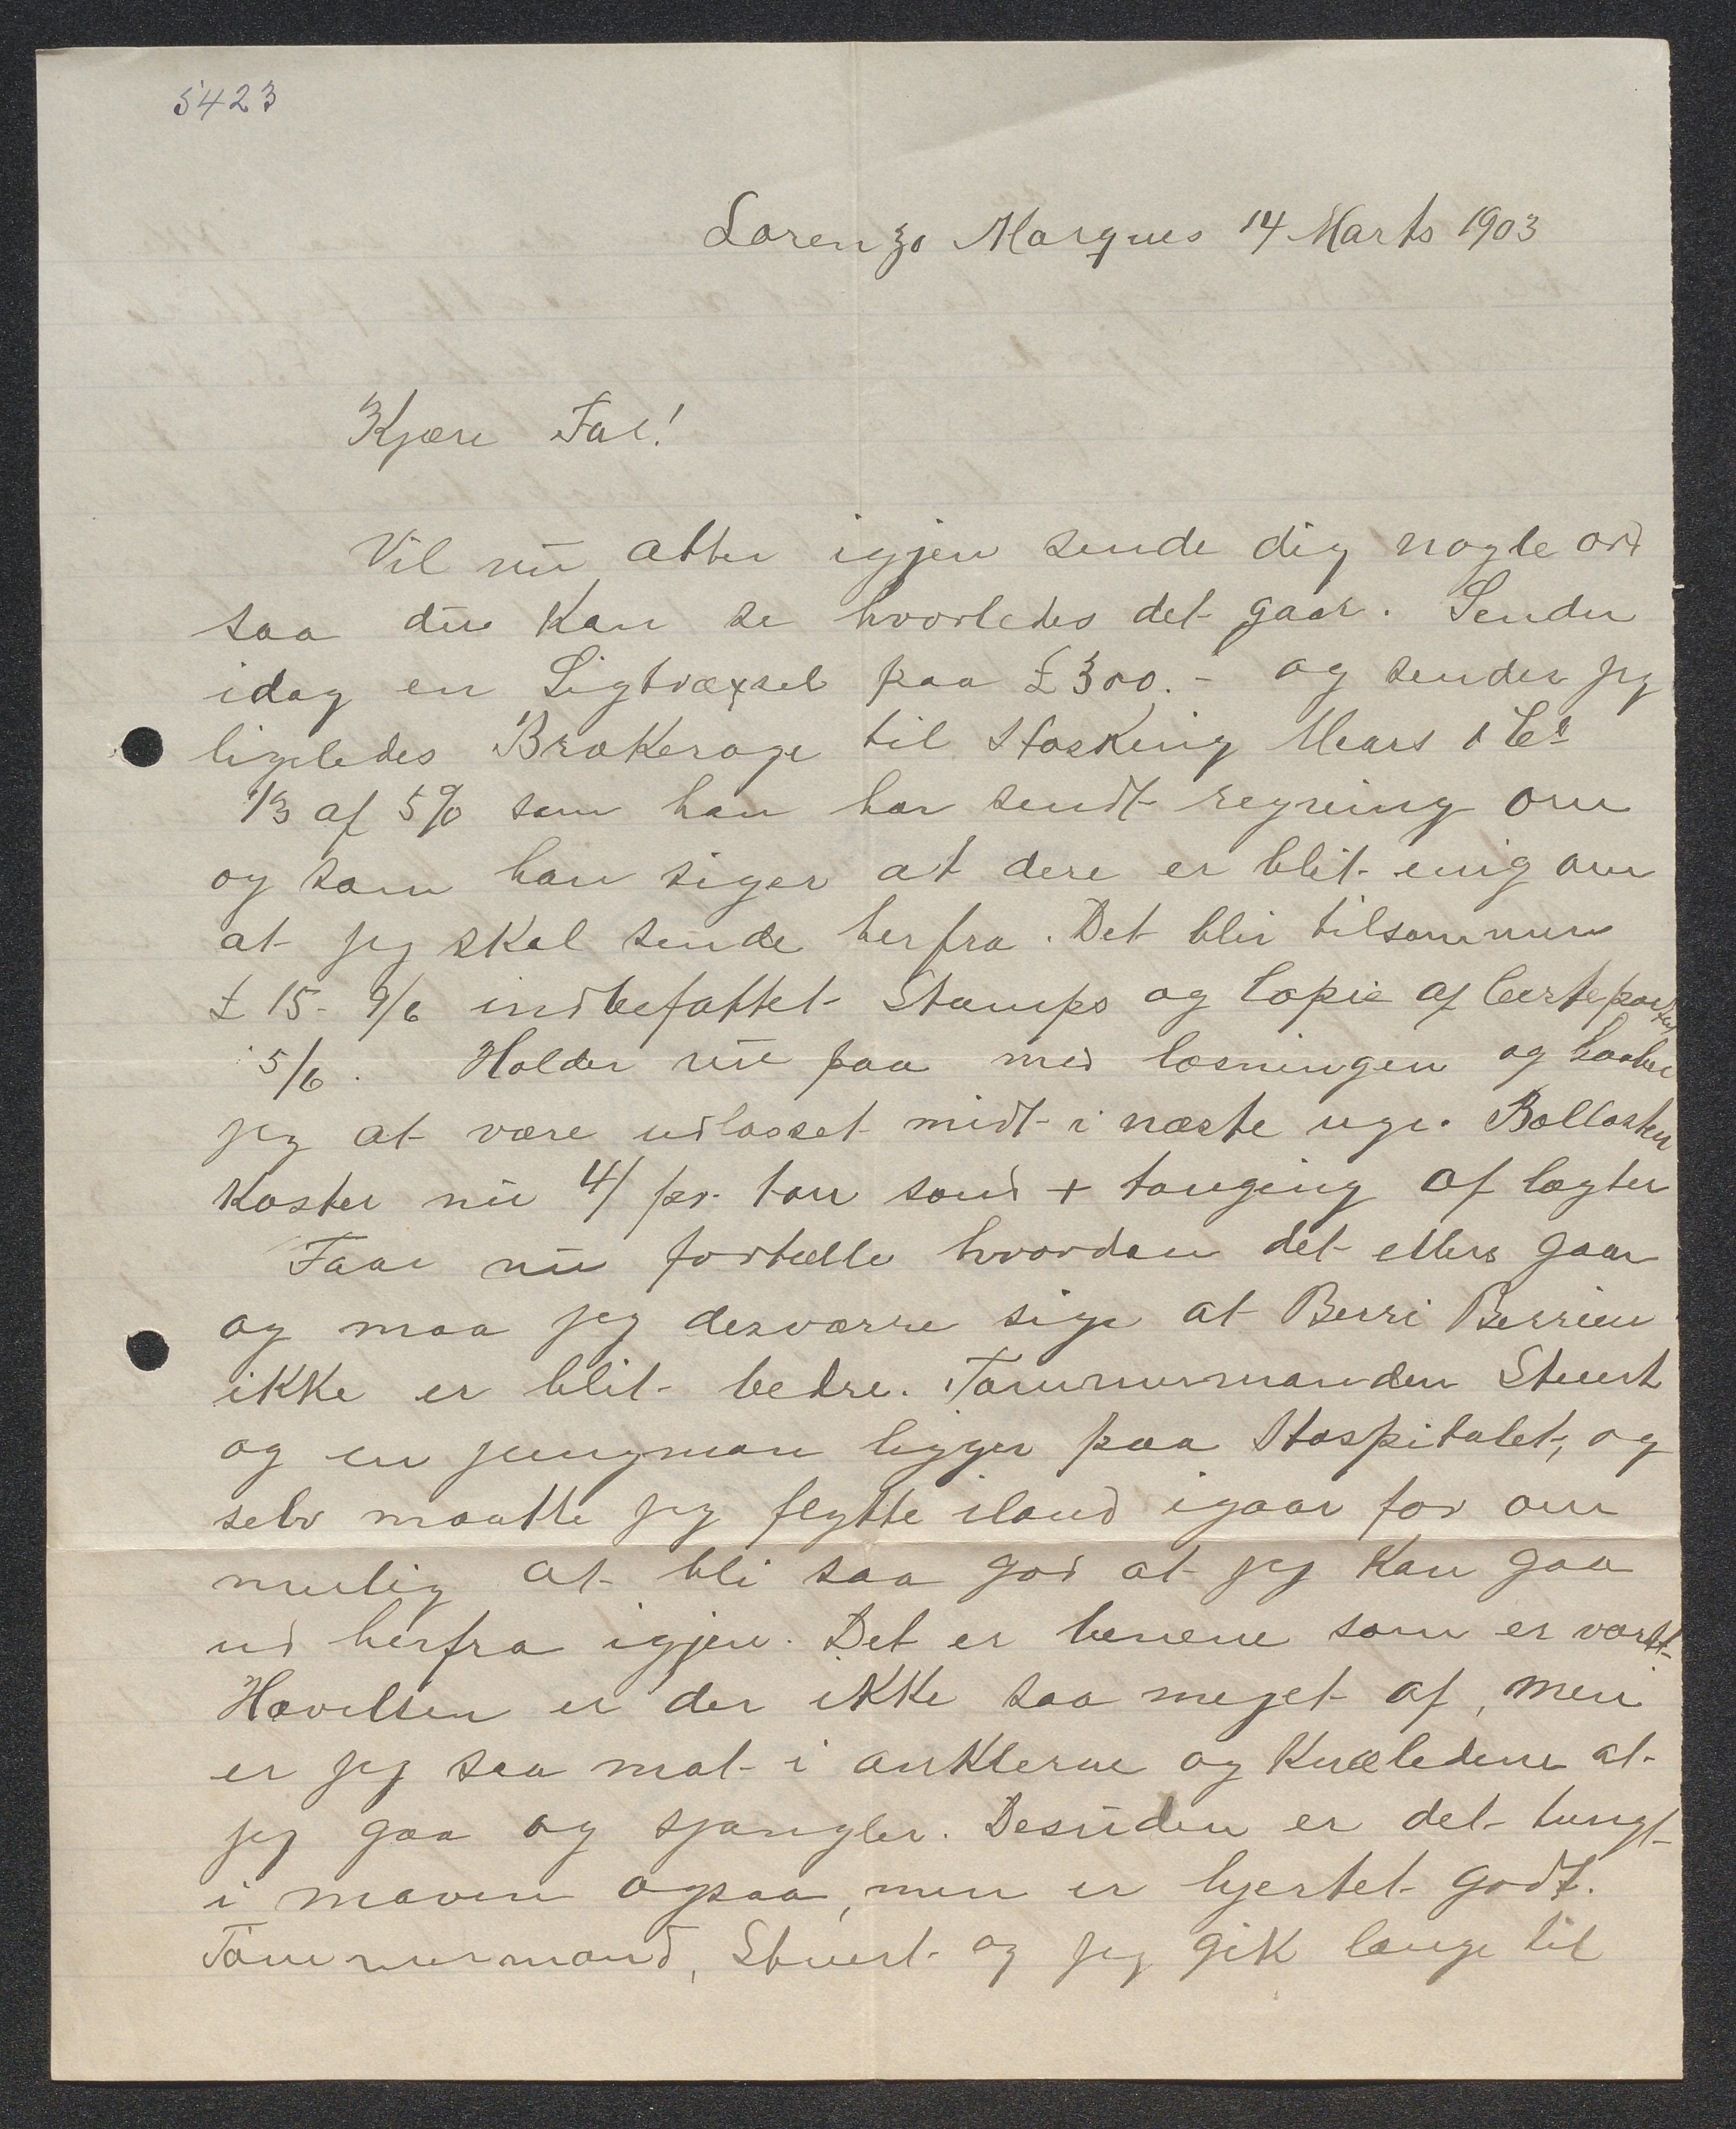 5423
Lorenzo Marques 14 Marts 1903
Kjære Far!
Vil nu atter igjen sende dig nogle ord
saa du kan se hvorledes det gaar. Sender
idag en Sigtvæxsel paa £300.- og sender jeg
ligeledes Brokerage til Hosking Mears & Co
1/3 af 5% som han har sendt regning om
og som han siger at dere er blit enig om
at jeg skal sende herfra. Det blir tilsammen
£ 15- 9/6 indbefattet Stamps og Copie af Certepartiet
5/6. Holder nu paa med losningen og haaber
jeg at være udlosset midt i næste uge. Ballasten
koster nu 4/ pr. ton sand + touging af lægter
Faar nu fortælle hvordan det ellers gaar
og maa jeg desværre sige at Berri Berrien
ikke er blit bedre. Tømmermanden Stuert
og en jungman ligger paa Hospitalet, og
selv maatte jeg flytte iland igaar for om
mulig at bli saa god at jeg kan gaa
ud herfra igjen. Det er benene som er værst
Hovelsen er der ikke saa meget af, men
er jeg saa mat i anklerne og knæledene at
jeg gaa og sjangler. Desuden er det tungt
i maven ogsaa, men er hjertet godt.
Tømmermand, Stuert og jeg gik længe til